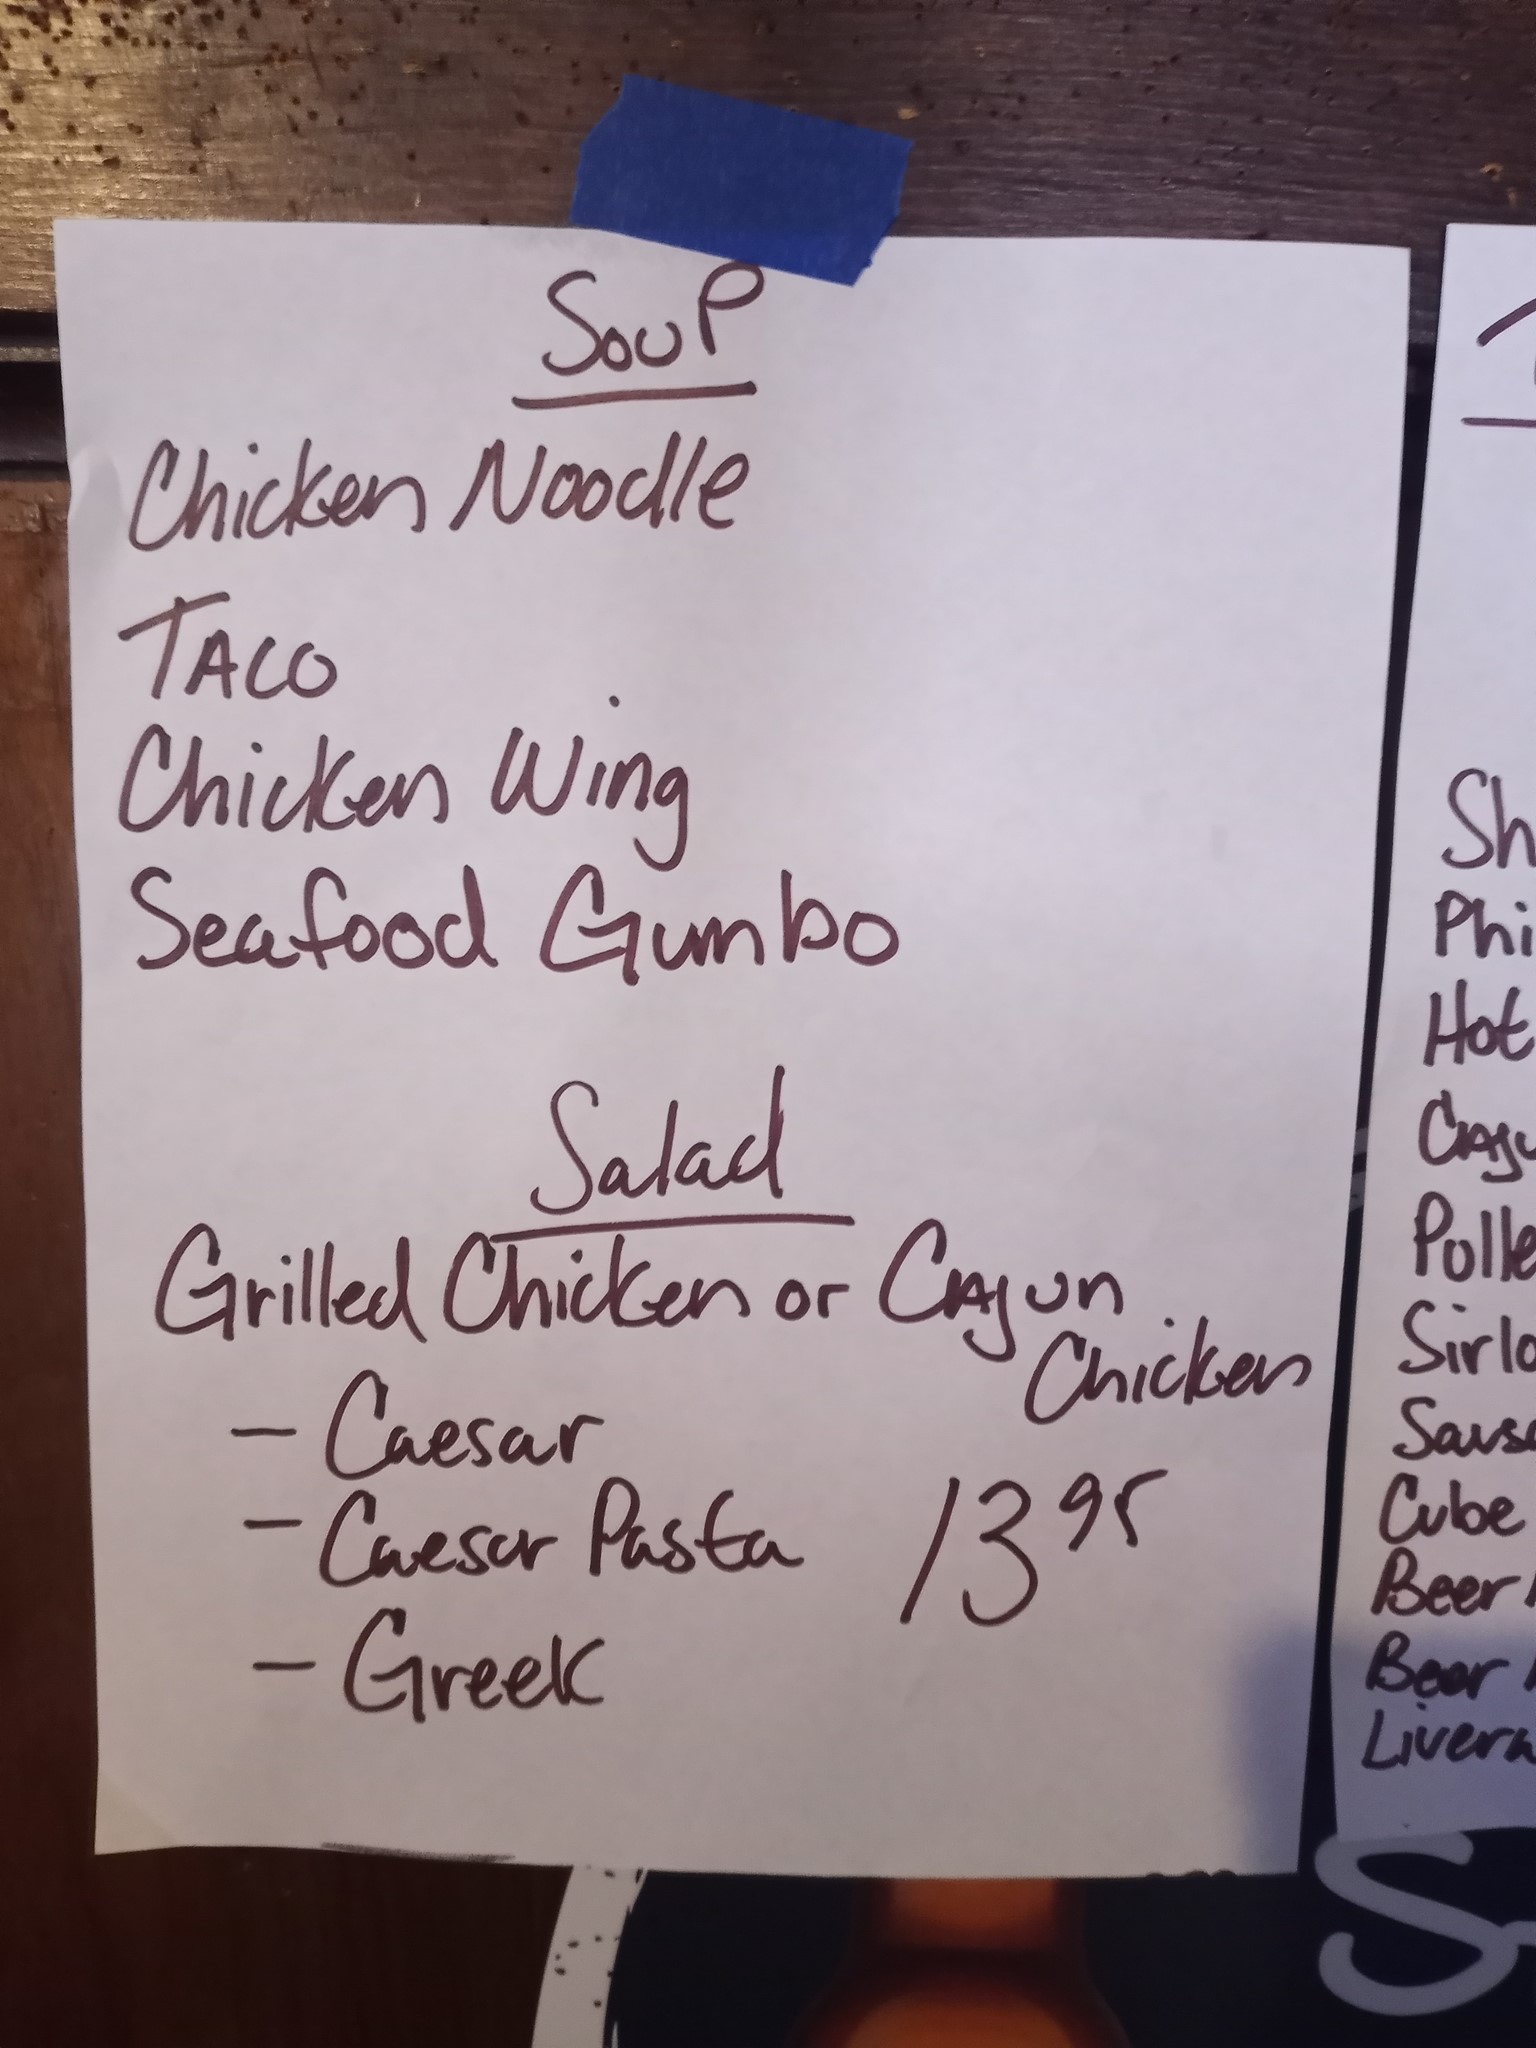 SouP
Chicken Noodle
TACO
Chicken Wing
Seafood Gumbo
Salad
Grilled Chicken or CAJUN
Chicken
- Caesar
- Caesar Pasta 13 95
- Greek
Sh
Phi
Hot
CAJU
Pulle
Sirlo
Saus
Cube
Beer
Beer
Liver
S